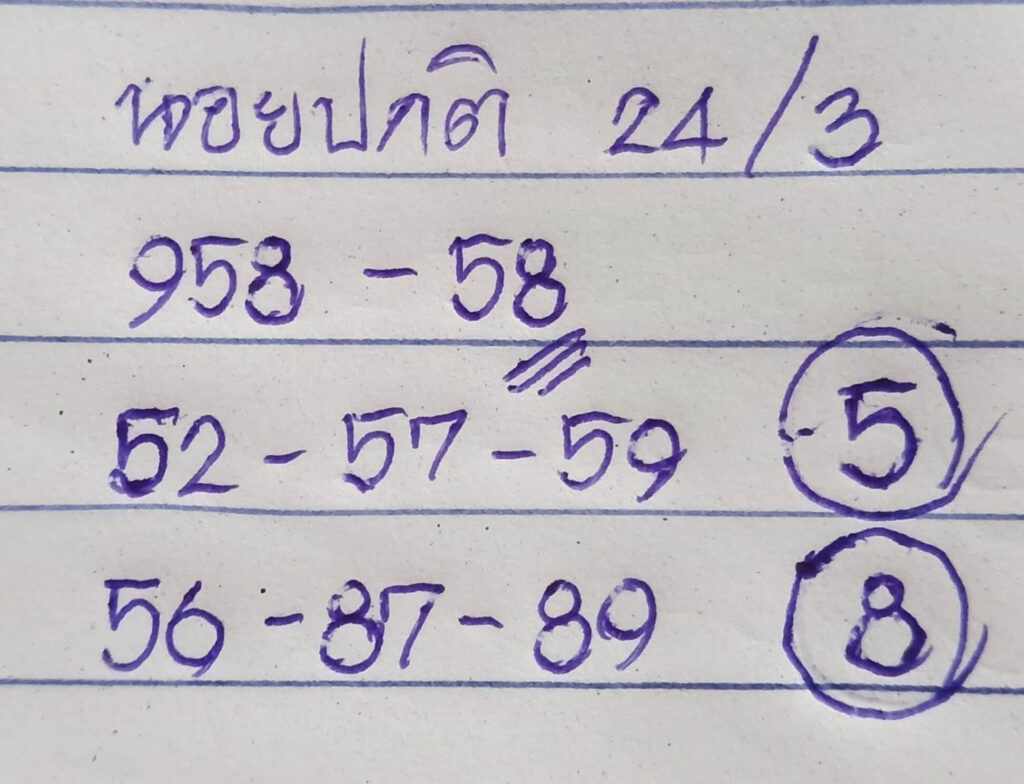 หอยปกติ 24/3
958 - 58
52 - 57 - 59 5
56 - 87 - 89 8